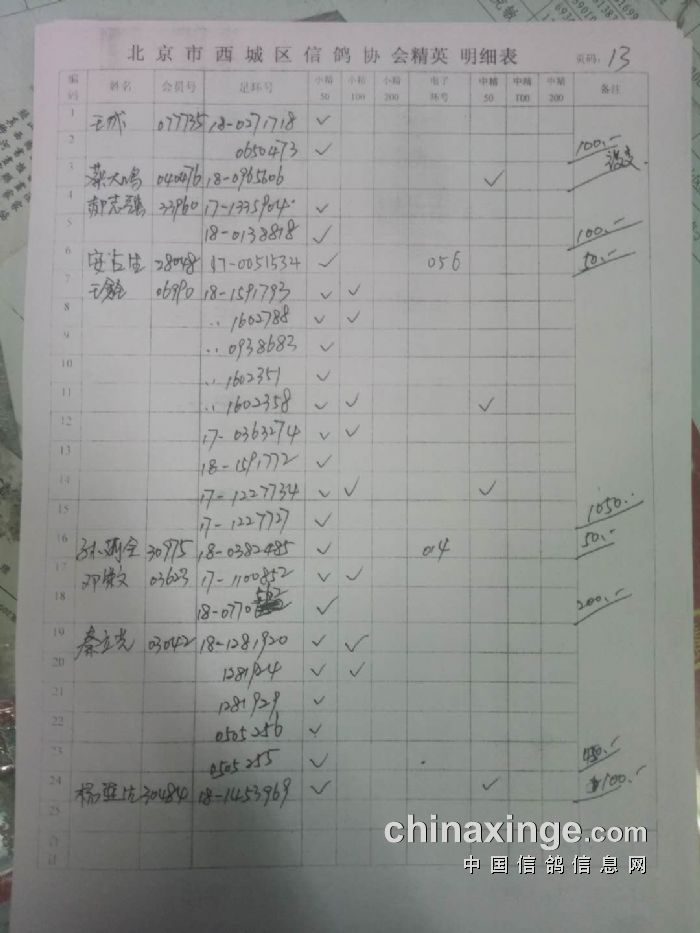 北京市西城区信鸽协会精英 明细表
页码: 13
编码 姓名 会员号 足环号 小精50 小精100 小精200 电子环号 中精50 中精100 中精200 备注
1 王成 077735 18-0271718 ✓
2 0650473 ✓ 100.-
3 蔡大鸣 040476 18-0965606 ✓
4 33960 17-1335904 ✓
5 18-0138818 ✓ 100.-
6 安吉生 28048 17-0051534 ✓ 056 50.-
7 06990 18-1591793 ✓ ✓
8 〃 1602788 ✓ ✓
9 〃 0938683 ✓
10 〃 1602351 ✓
11 〃 1602358 ✓ ✓ ✓
12 17-0363274 ✓ ✓
13 18-1591772 ✓
14 17-1227734 ✓ ✓ ✓
15 17-1227727 ✓ 1050.-
16 30975 18-0382485 ✓ 014 50.-
17 03623 17-1100852 ✓ ✓
18 18-0770562 ✓ 200.-
19 秦立光 03042 18-1281920 ✓ ✓
20 1281924 ✓ ✓
21 1281929 ✓
22 0505256 ✓
23 0505255 ✓ 450.-
24 304840 18-1453969 ✓ ✓ 100.-
25
合计
chinaxinge.com
中国信鸽信息网